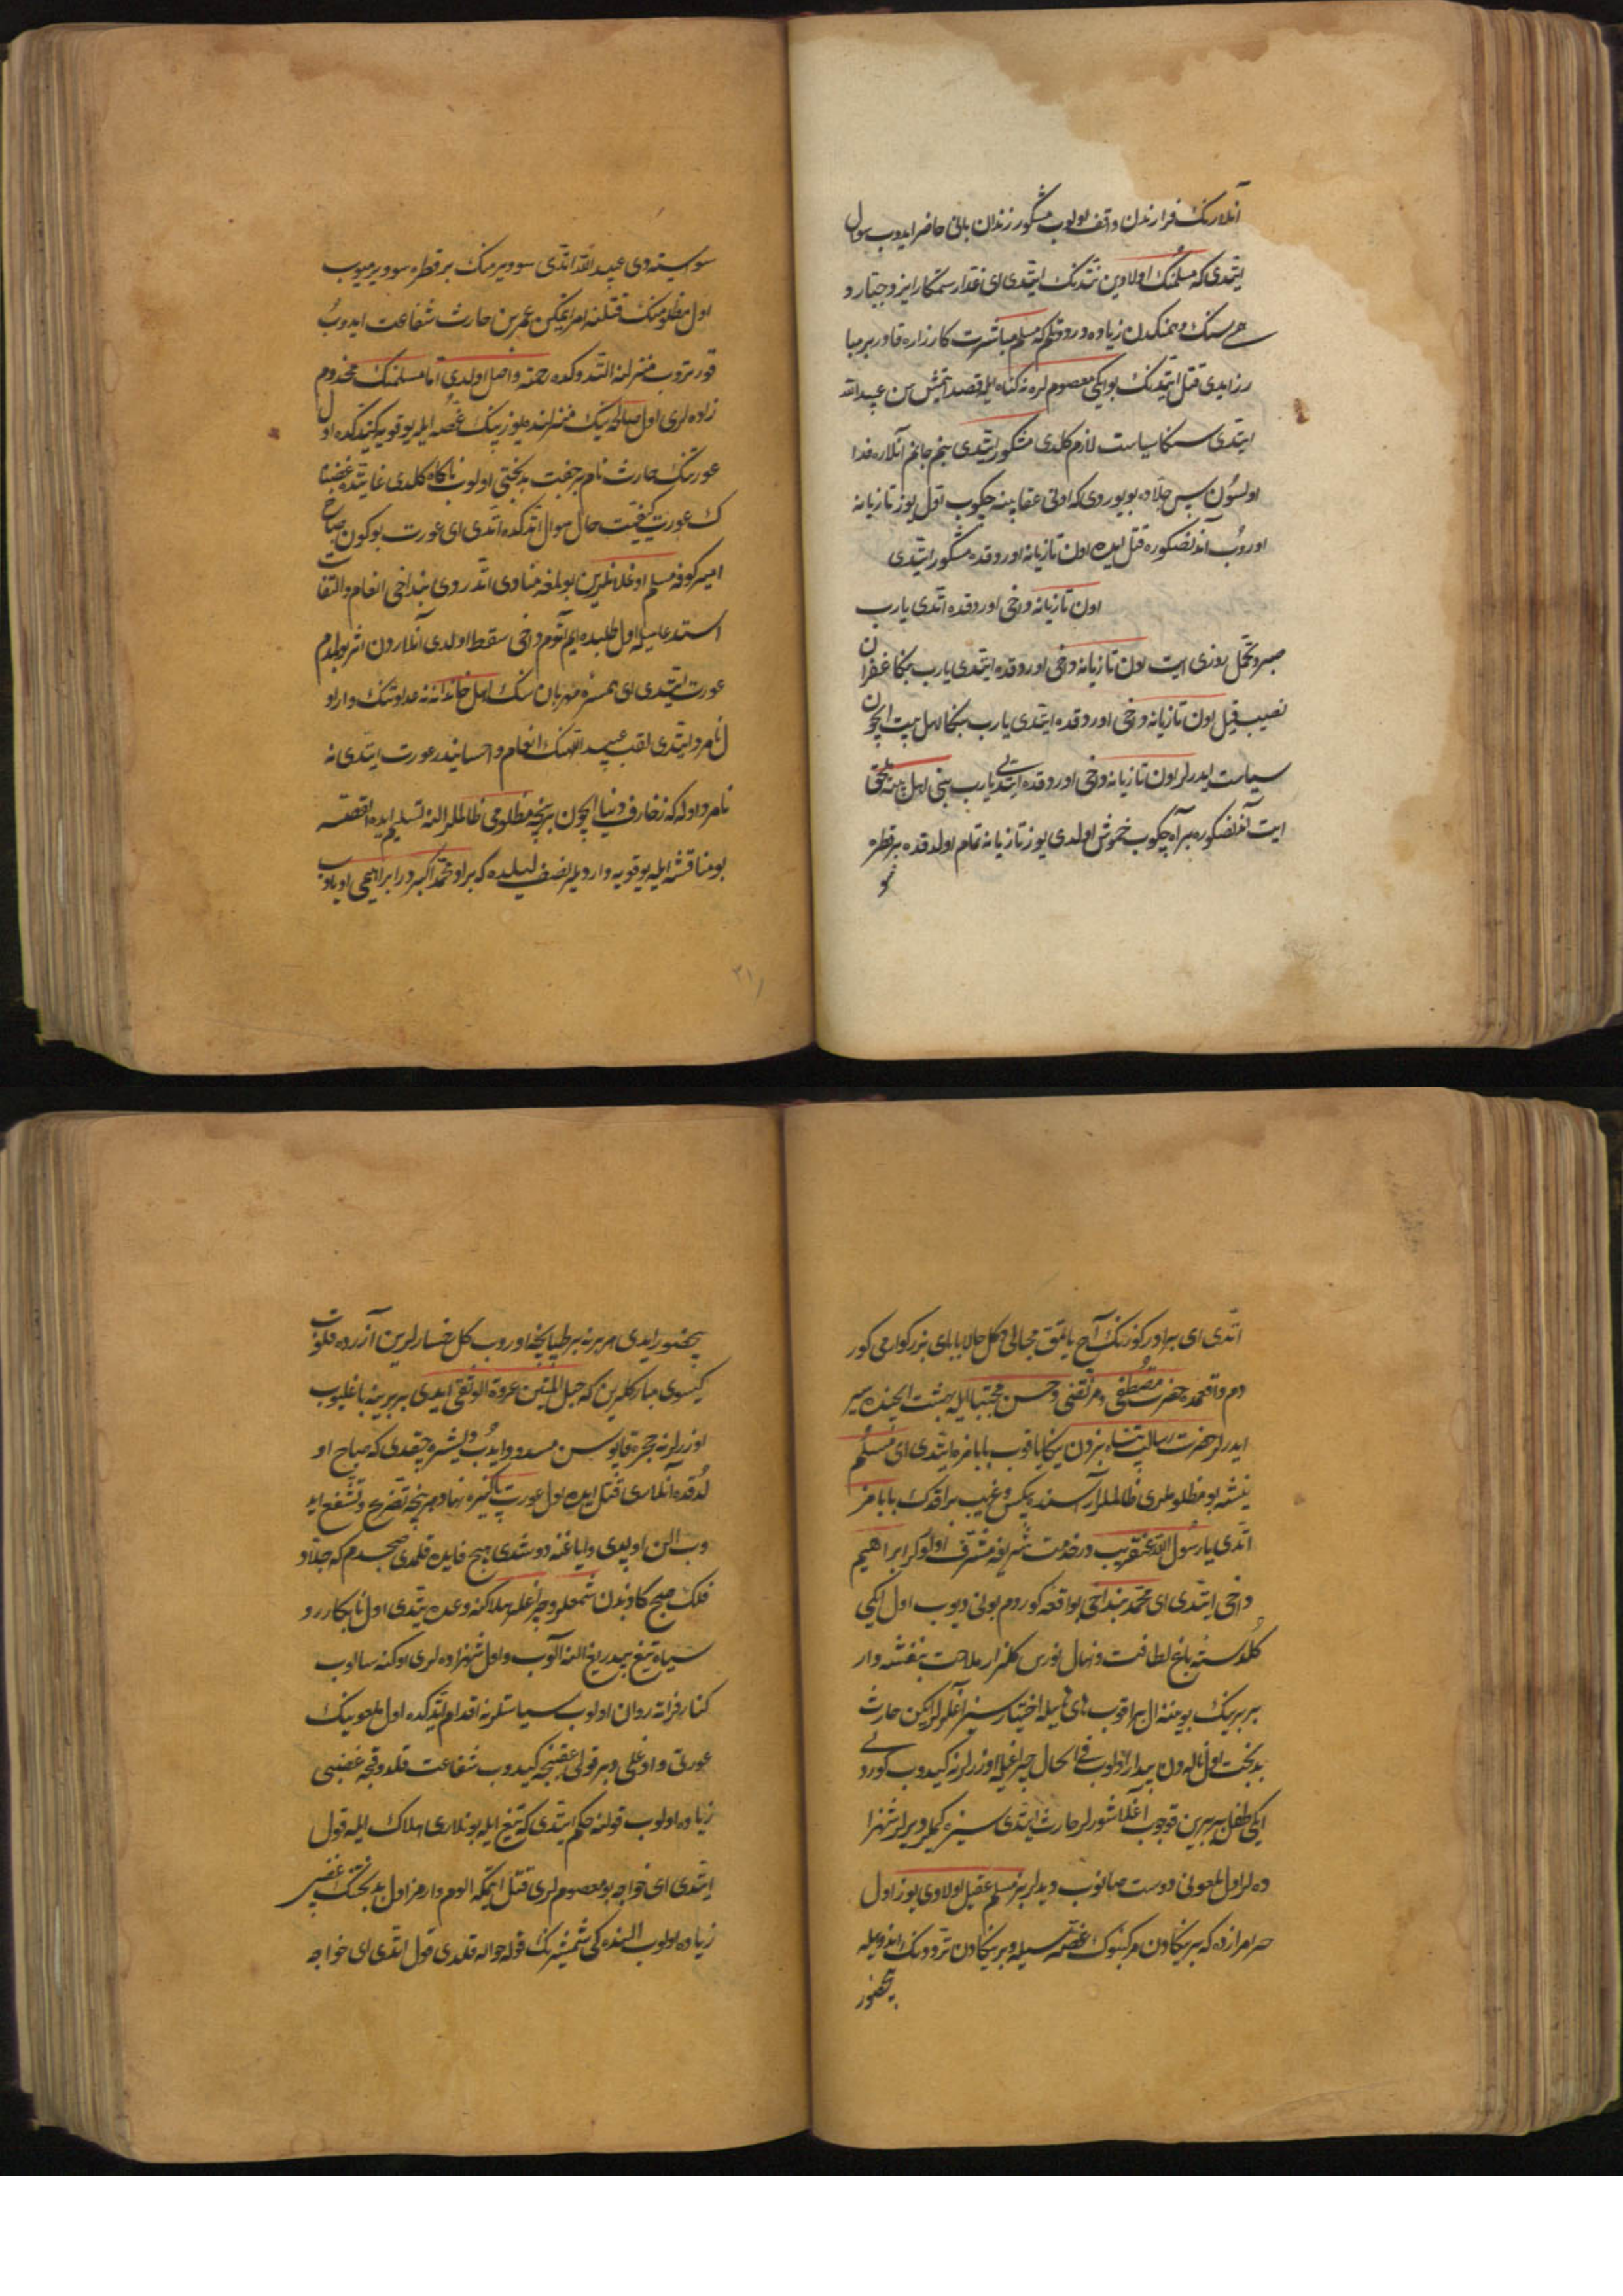 آنلارنك فرارندن واقف اولوب مشكور زندان بانی حاضر ايدوب سوال
ايتدی كه مسلمنك اولادين نتدنك ايتدی ای غدار ستمكار ايز و جبار و
رز ايدی قتل ايتدنك بو ايكی معصوم لره نه كناه ايله قصد ايتمش سن عبيدالله
ايتدی سكا سياست لازم كلدی مشكور ايتدی بنم جانم آنلاره فدا
اولسون پس جلاده بويوردی كه اونی عقابينه چكوب اول يوز تازيانه
اوروب آندنصكوره قتل ايده اون تازيانه اوردقده مشكور ايتدی
اون تازيانه داخی اوردقده اتدی يارب
صبر و تحمل روزی ايت اون تازيانه داخی اوردقده ايتدی يارب بنكا غفران
نصيب قيل اون تازيانه داخی اوردقده ايتدی يارب بنكا اهل بيت ايچون
سياست ايدرلر اون تازيانه داخی اوردقده ايتدی يارب بنی اهل بيته ملحق
ايت آندنصكوره بر آه چكوب خموش اولدی يوز تازيانه تمام اولدقده بر قطره
سو
سو ايستدی عبيدالله اتدی سو ويرمنك بر قطره سو ويرميوب
اول مظلومنك قتلنه امر ايتكن عمر بن حارث شفاعت ايدوب
قورتروب منزلنه التدوكده رحمته واصل اولدی اما مسلمنك مخدوم
زاده لری اول صالحه نينك منزلنده يوز بينك غصه ايله يوقويه كيتدكده اول
عورتنك حارث نام بر جفت بدبختی اولوب ناكاه كلدی غايتده غضبنا
ك عورت كيفيت حال سوال اتدكده اتدی ای عورت بوكون صباح
امير كوفه مسلم اوغلانلرين بولمغه منادی اتدردی بنداخی انعام و التفات
استدعاسيله اول طلبده ايم آتوم داخی سقط اولدی آنلاردن اثر بولمدم
عورت ايتدی ای همسرۀ مهربان سنك اهل خاندانه نه عداوتنك وار او
ل نامرد ايتدی لقب عبيداللهنك انعام و احسانيدر عورت ايتدی نه
نامرد اوله كه زخارف دنيا ايچون بر نچه مظلومی ظالملر النه تسليم ايده القصه
بو مناقشه ايله يوقويه وارديلر نصف ليلده كه براو محمد اكبردر ابراهيمی اوياروب
اتدی ای برادر كوزنك آچ ياتمق مجالی دكل حالا بابای بزركوارمی كور
دم واقعمده حضرت مصطفی و مرتضی و حسن مجتبا ايله بهشت ايچنده سير
ايدرلر حضرت رسالتپناه بزدن يكا باقوب بابامزه ايتدی ای مسلم
نيشه بو مظلوملری ظالملر آراسنده بيكس و غريب براقدك بابامز
اتدی يا رسول الله عنقريب در خدمت شريفه مشرف اولورلر ابراهيم
داخی ايتدی ای محمد بنداخی بو واقعه كوردم بونی ديوب اول ايكی
كلدستۀ باغ لطافت و نهال نورس كلزار ملاحت بنفشه وار
بربرينك بوينه ال براقوب های هايله اختيارسز آغلرلر ايكن حارث
بدبخت اول ناله دن بيدار اولوب فی الحال چراغيله اوزرلرنه كيدوب كوردی
ايكی طفل بربرين قوجوب آغلاشورلر حارث ايتدی سيز كملر ديرلر شهزا
ده لر اول ملعونی دوست صانوب ديديلر بز مسلم عقيل اولادی يوز اول
حرامزاده كه بر يكادن مركبنوك غصه سيله و بر يكادن تردودنك اندوهيله
بيحضور
بيحضور ايدی هر برنه بر طپانچه اوروب كل رخسارلرين آزرده قلوب
كيسوی مباركلرين كه حبل المتين عروة الوثقی ايدی بربرينه باغليوب
اوزرلرنه حجره قاپوسن مسدود ايدوب و ليشره چيقدی كه صباح او
لدقده آنلاری قتل ايده اول عورت پاكيزه نهاد هر نچه تضرع و تشفع ايد
وب الن اوپدی و اياغنه دوشدی هيچ فايده قلمدی صبحدم كه جلاد
فلك صبح كاوندن شمعلر و چراغلر هلاكنه وعده يتدی اول نابكار رو
سياه تيغ بيدريغ النه آلوب و اول شهزاده لری اوكنه سالوب
كنار فراته روان اولوب سياستلرنه اقدام ايتدكده اول ملعونينك
عورتی و اوغلی و بر قولی عقبنجه كيدوب شفاعت قلدوقجه غضبی
زياده اولوب قولنه حكم ايتدی كه تيغ ايله بونلاری هلاك ايله قول
ايتدی ای خواجه بو معصوم لری قتل ايتمكه الوم وارمز اول بدبختنك غضبی
زياده اولوب النده كی شمشيرنك قوله حواله قلدی قول اتدی ای خواجه